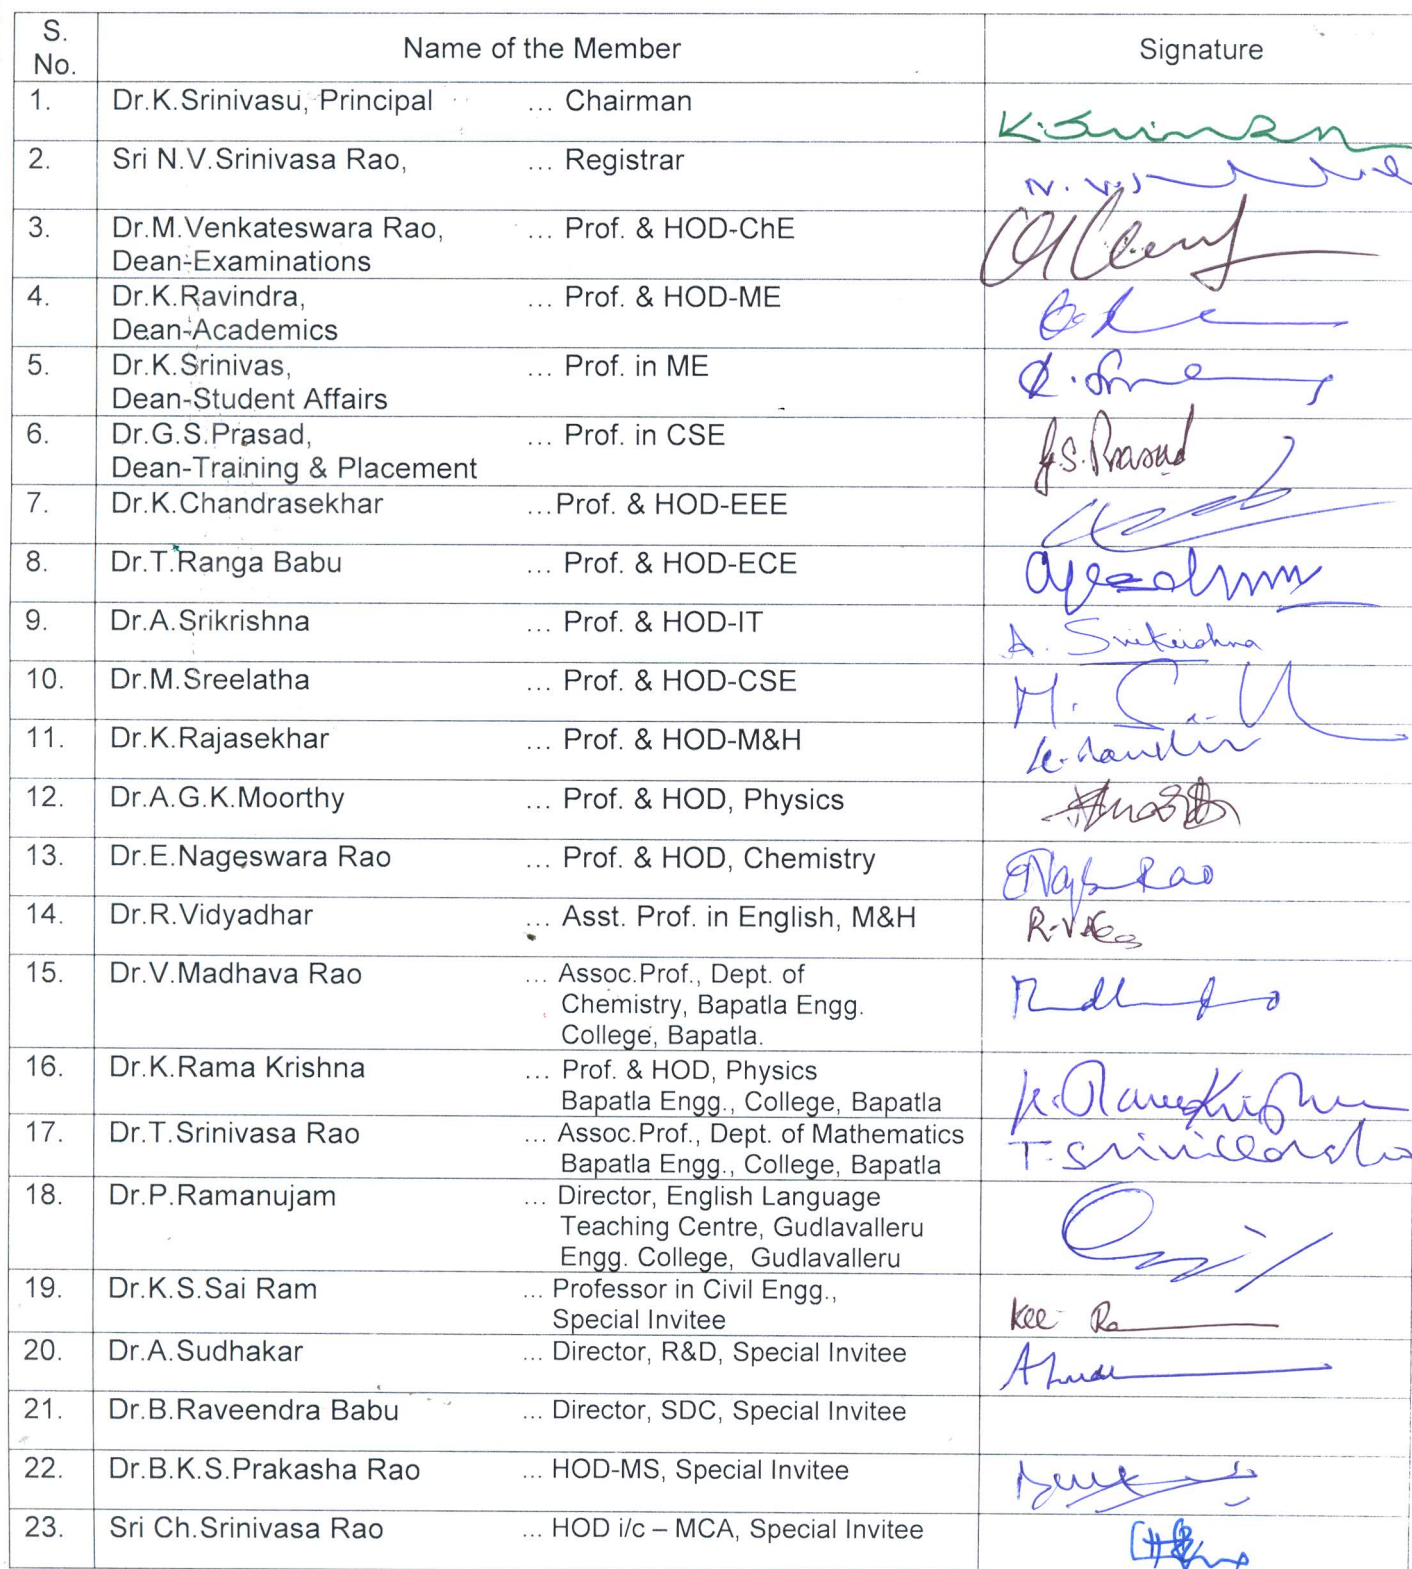 S. No. Name of the Member Signature
1. Dr.K.Srinivasu, Principal ... Chairman
2. Sri N.V.Srinivasa Rao, ... Registrar
3. Dr.M.Venkateswara Rao, ... Prof. & HOD-ChE
Dean-Examinations
4. Dr.K.Ravindra, ... Prof. & HOD-ME
Dean-Academics
5. Dr.K.Srinivas, ... Prof. in ME
Dean-Student Affairs
6. Dr.G.S.Prasad, ... Prof. in CSE
Dean-Training & Placement G.S.Prasad
7. Dr.K.Chandrasekhar ...Prof. & HOD-EEE
8. Dr.T.Ranga Babu ... Prof. & HOD-ECE
9. Dr.A.Srikrishna ... Prof. & HOD-IT A. Srikrishna
10. Dr.M.Sreelatha ... Prof. & HOD-CSE
11. Dr.K.Rajasekhar ... Prof. & HOD-M&H
12. Dr.A.G.K.Moorthy ... Prof. & HOD, Physics
13. Dr.E.Nageswara Rao ... Prof. & HOD, Chemistry
14. Dr.R.Vidyadhar ... Asst. Prof. in English, M&H
15. Dr.V.Madhava Rao ... Assoc.Prof., Dept. of
Chemistry, Bapatla Engg.
College, Bapatla.
16. Dr.K.Rama Krishna ... Prof. & HOD, Physics
Bapatla Engg., College, Bapatla K. RamaKrishna
17. Dr.T.Srinivasa Rao ... Assoc.Prof., Dept. of Mathematics
Bapatla Engg., College, Bapatla
18. Dr.P.Ramanujam ... Director, English Language
Teaching Centre, Gudlavalleru
Engg. College, Gudlavalleru
19. Dr.K.S.Sai Ram ... Professor in Civil Engg.,
Special Invitee
20. Dr.A.Sudhakar ... Director, R&D, Special Invitee
21. Dr.B.Raveendra Babu ... Director, SDC, Special Invitee
22. Dr.B.K.S.Prakasha Rao ... HOD-MS, Special Invitee
23. Sri Ch.Srinivasa Rao ... HOD i/c – MCA, Special Invitee